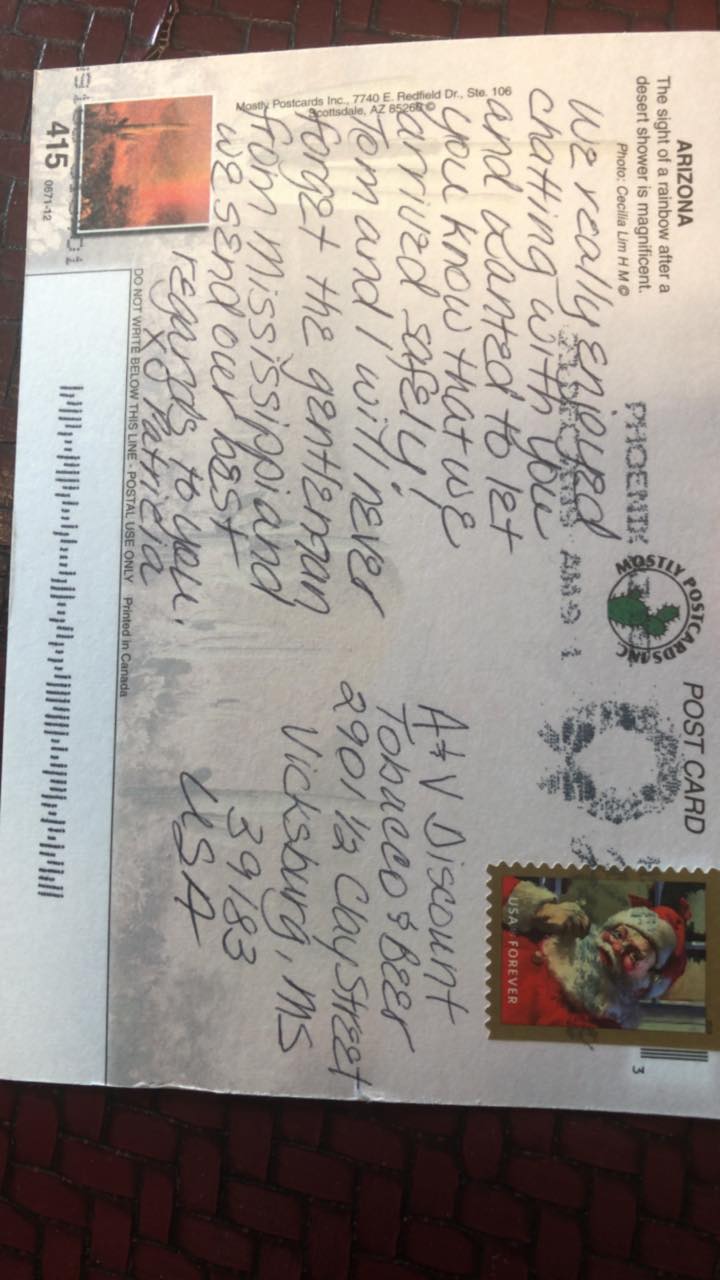 ARIZONA
The sight of a rainbow after a
desert shower is magnificent.
Photo: Cecilia Lim H M ©
POST CARD
MOSTLY POSTCARDS INC
PHOENIX
USA FOREVER
3
We really enjoyed
chatting with you
and wanted to let
you know that we
arrived safely!
Tom and I will never
forget the gentleman
from Mississippi and
we send our best
regards to you.
XO Patricia
A&V Discount
Tobacco & Beer
2901 1/2 Clay Street
Vicksburg, MS
39183
USA
Mostly Postcards Inc., 7740 E. Redfield Dr., Ste. 106
Scottsdale, AZ 85260 ©
DO NOT WRITE BELOW THIS LINE - POSTAL USE ONLY Printed in Canada
415 0671-12